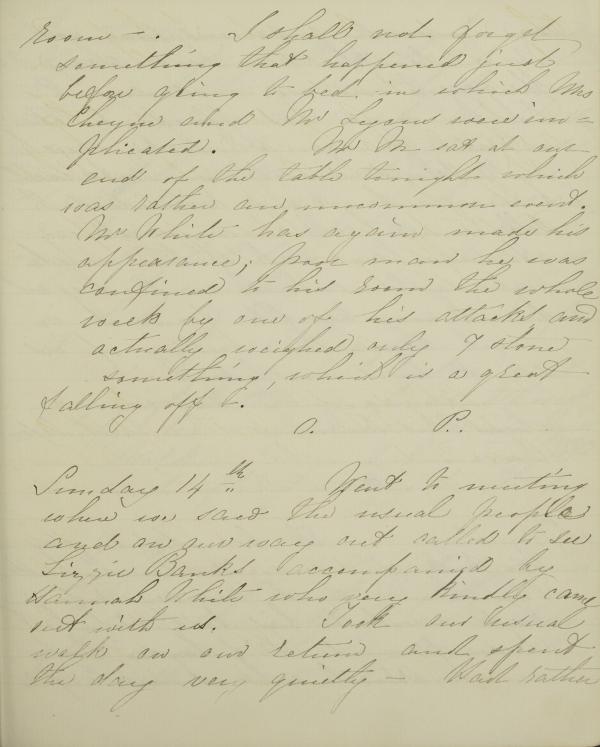 room – . I shall not forget
something that happened just
before going to bed in which Mrs
Cheyne and Mr Lyons were im=
plicated. Mr M sat at our
end of the table tonight which
was rather an uncommon event.
Mr White has again made his
appearance; poor man he was
confined to his room the whole
week by one of his attacks and
actually weighed only 7 stone
something, which is a great
falling off.
O. P.
Sunday 14th Went to meeting
where we saw the usual people
and on our way out called to see
Lizzie Banks accompanied by
Hannah White who very kindly came
out with us. Took our usual
walk on our return and spent
the day very quietly – Had rather